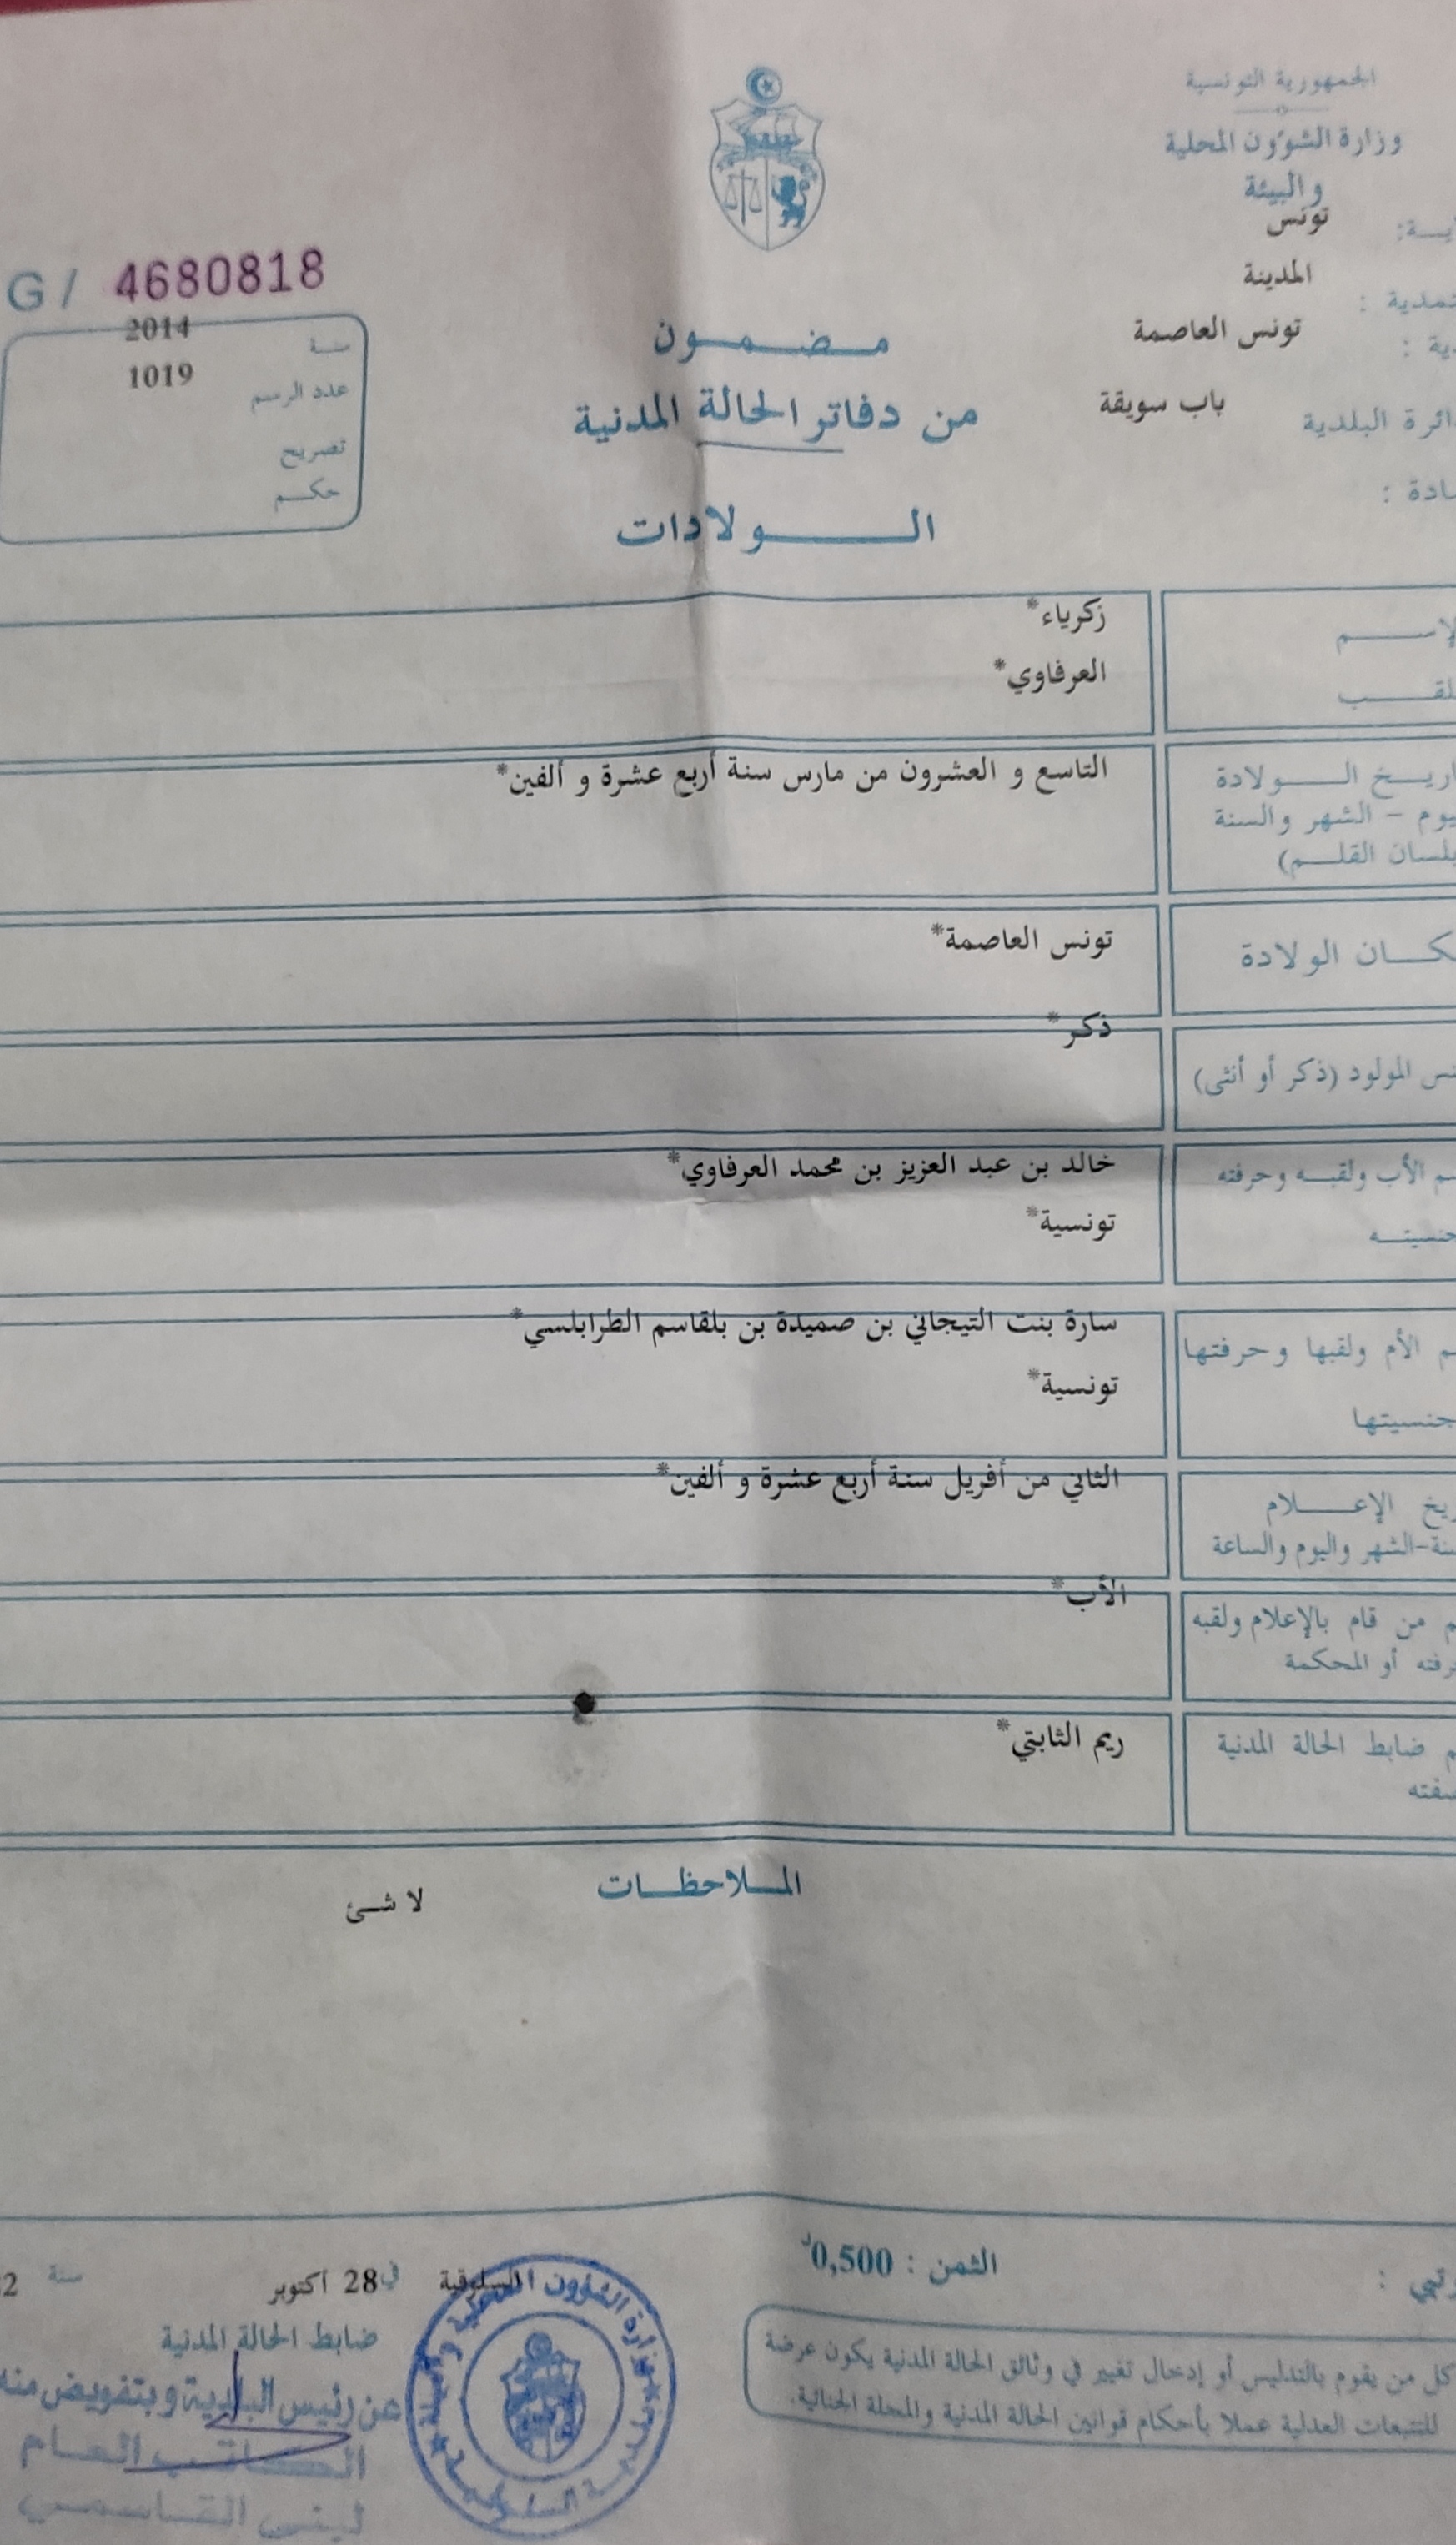 الجمهورية التونسية
وزارة الشؤون المحلية
والبيئة
تونس
المدينة
تونس العاصمة
دائرة البلدية باب سويقة
G / 4680818
سنة 2014
عدد الرسم 1019
تصريح
حكم
مضمون
من دفاتر الحالة المدنية
الولادات
الإسم زكرياء*
اللقب العرفاوي*
تاريخ الولادة التاسع و العشرون من مارس سنة أربع عشرة و ألفين*
اليوم - الشهر والسنة
بلسان القلم)
مكان الولادة تونس العاصمة*
جنس المولود (ذكر أو أنثى) ذكر*
اسم الأب ولقبه وحرفته خالد بن عبد العزيز بن محمد العرفاوي*
جنسيته تونسية*
اسم الأم ولقبها وحرفتها سارة بنت التيجاني بن صميدة بن بلقاسم الطرابلسي*
جنسيتها تونسية*
تاريخ الإعلام الثاني من أفريل سنة أربع عشرة و ألفين*
السنة-الشهر واليوم والساعة
اسم من قام بالإعلام ولقبه الأب*
حرفته أو المحكمة
اسم ضابط الحالة المدنية ريم الثابتي*
صفته
الملاحظات
لا شئ
الثمن : 0,500د
كل من يقوم بالتدليس أو إدخال تغيير في وثائق الحالة المدنية يكون عرضة
للتتبعات العدلية عملا بأحكام قوانين الحالة المدنية والمجلة الجنائية.
السلوقية في 28 أكتوبر سنة
ضابط الحالة المدنية
عن رئيس البلدية وبتفويض منه
الكاتب العام
لبنى القاسمي